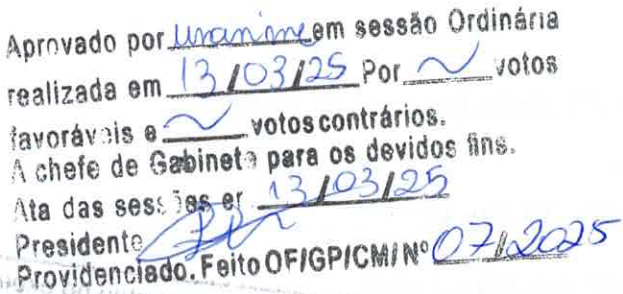 Aprovado por unanime em sessão Ordinária
realizada em 13/03/25 Por ~ votos
favoráveis e ~ votos contrários.
A chefe de Gabinete para os devidos fins.
Ata das sessões er 13/03/25
Presidente
Providenciado. Feito OF/GP/CM/Nº 07/2025